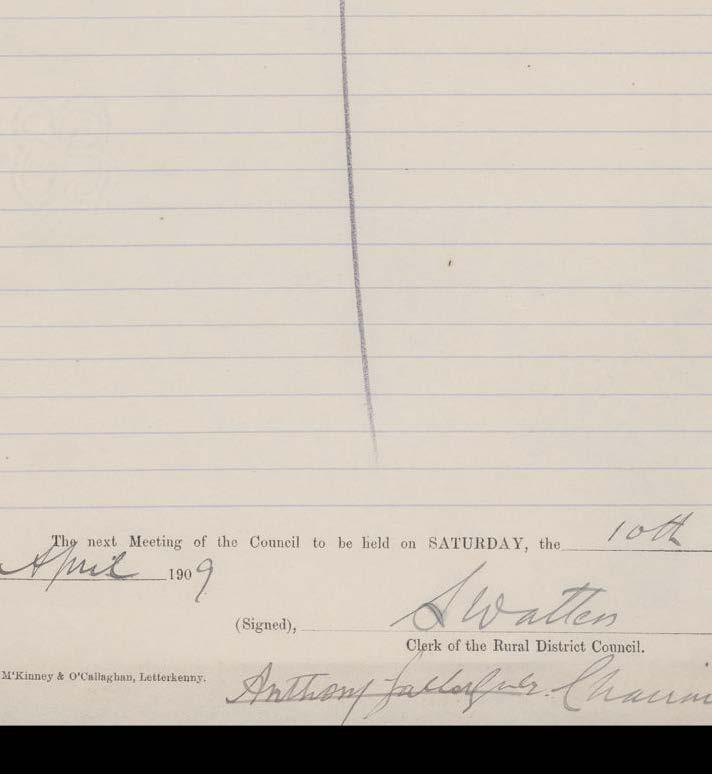 The next Meeting of the Council to be held on SATURDAY, the 10th
April 1909
(Signed), S Watters
Clerk of the Rural District Council.
M'Kinney & O'Callaghan, Letterkenny.
Anthony Gallagher.